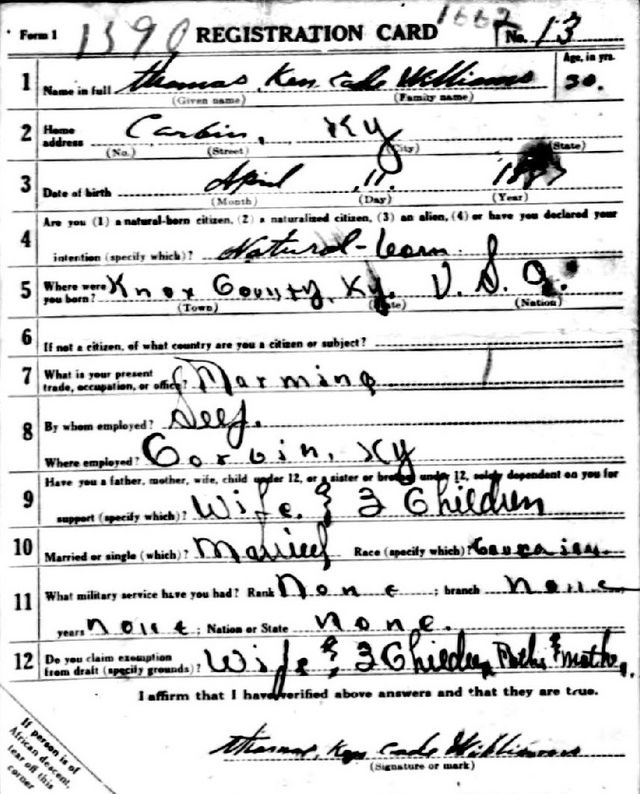 Form 1 1390 REGISTRATION CARD 1662 No. 13
1 Name in full Thomas, Ken Cade Williams Age, in yrs. 30.
(Given name) (Family name)
2 Home address Corbin, Ky
(No.) (Street) (City) (State)
3 Date of birth April 11,
(Month) (Day) (Year)
4 Are you (1) a natural-born citizen, (2) a naturalized citizen, (3) an alien, (4) or have you declared your
intention (specify which)? Natural-born
5 Where were you born? Knox County, Ky. U. S. A.
(Town) (State) (Nation)
6 If not a citizen, of what country are you a citizen or subject?
7 What is your present trade, occupation, or office?
8 By whom employed? Self.
Where employed? Corbin, Ky
9 Have you a father, mother, wife, child under 12, or a sister or brother under 12, solely dependent on you for
support (specify which)? Wife & 3 Children
10 Married or single (which)? Married Race (specify which)?
11 What military service have you had? Rank None ; branch None
years None ; Nation or State None.
12 Do you claim exemption from draft (specify grounds)? Wife & 3 Children, & Mother
I affirm that I have verified above answers and that they are true.
Thomas, Ken Cade Williams
(Signature or mark)
If person is of
African descent,
tear off this
corner